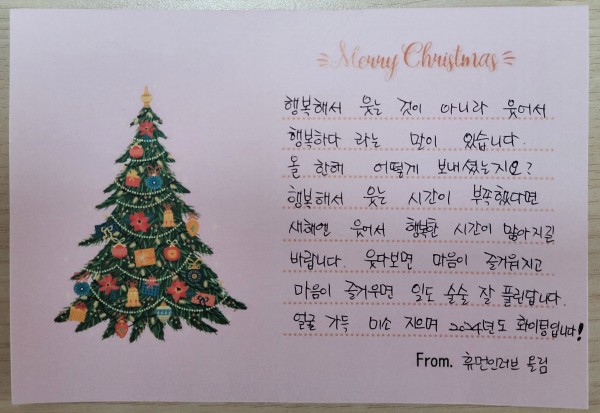 Merry Christmas
행복해서 웃는 것이 아니라 웃어서
행복하다 라는 말이 있습니다.
올 한해 어떻게 보내셨는지요?
행복해서 웃는 시간이 부족했다면
새해엔 웃어서 행복한 시간이 많아지길
바랍니다. 웃다보면 마음이 즐거워지고
마음이 즐거우면 일도 술술 잘 풀린답니다.
얼굴 가득 미소 지으며 2024년도 화이팅입니다!
From. 휴먼인러브 올림